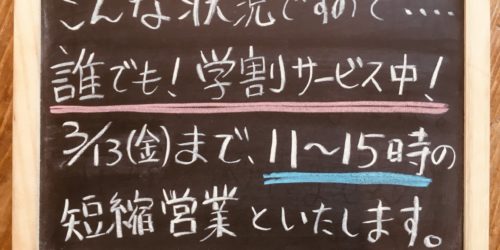 こんな状況ですので‥‥
誰でも!学割サービス中!
3/13(金)まで、11〜15時の
短縮営業といたします。